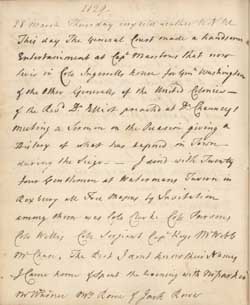 1129.
28 March Thursday cold weather N. W.
This day the General Court made a handsome
Entertainment at Capt Marstons that now
lives in Colo Ingersolls house for Genl Washington
& the other Generals of the United Colonies —
& the Revd Dr Elliot preached at Dr Chauncys
Meeting a Sermon on the Occasion giving a
History of what has in Town
during the Siege — I dind with Twenty
four Gentlemen at Watermans Tavern in
Roxbury all Free Masons by Invitation
among them was Colo Colo Parsons
Colo Wyllis Colo Serjeant Capt Mr Webb
Mr Chase. The Rest I dont know their Names
I came home & spent the Evening with
Mr Warner Mrs Rowe & Jack Rowe